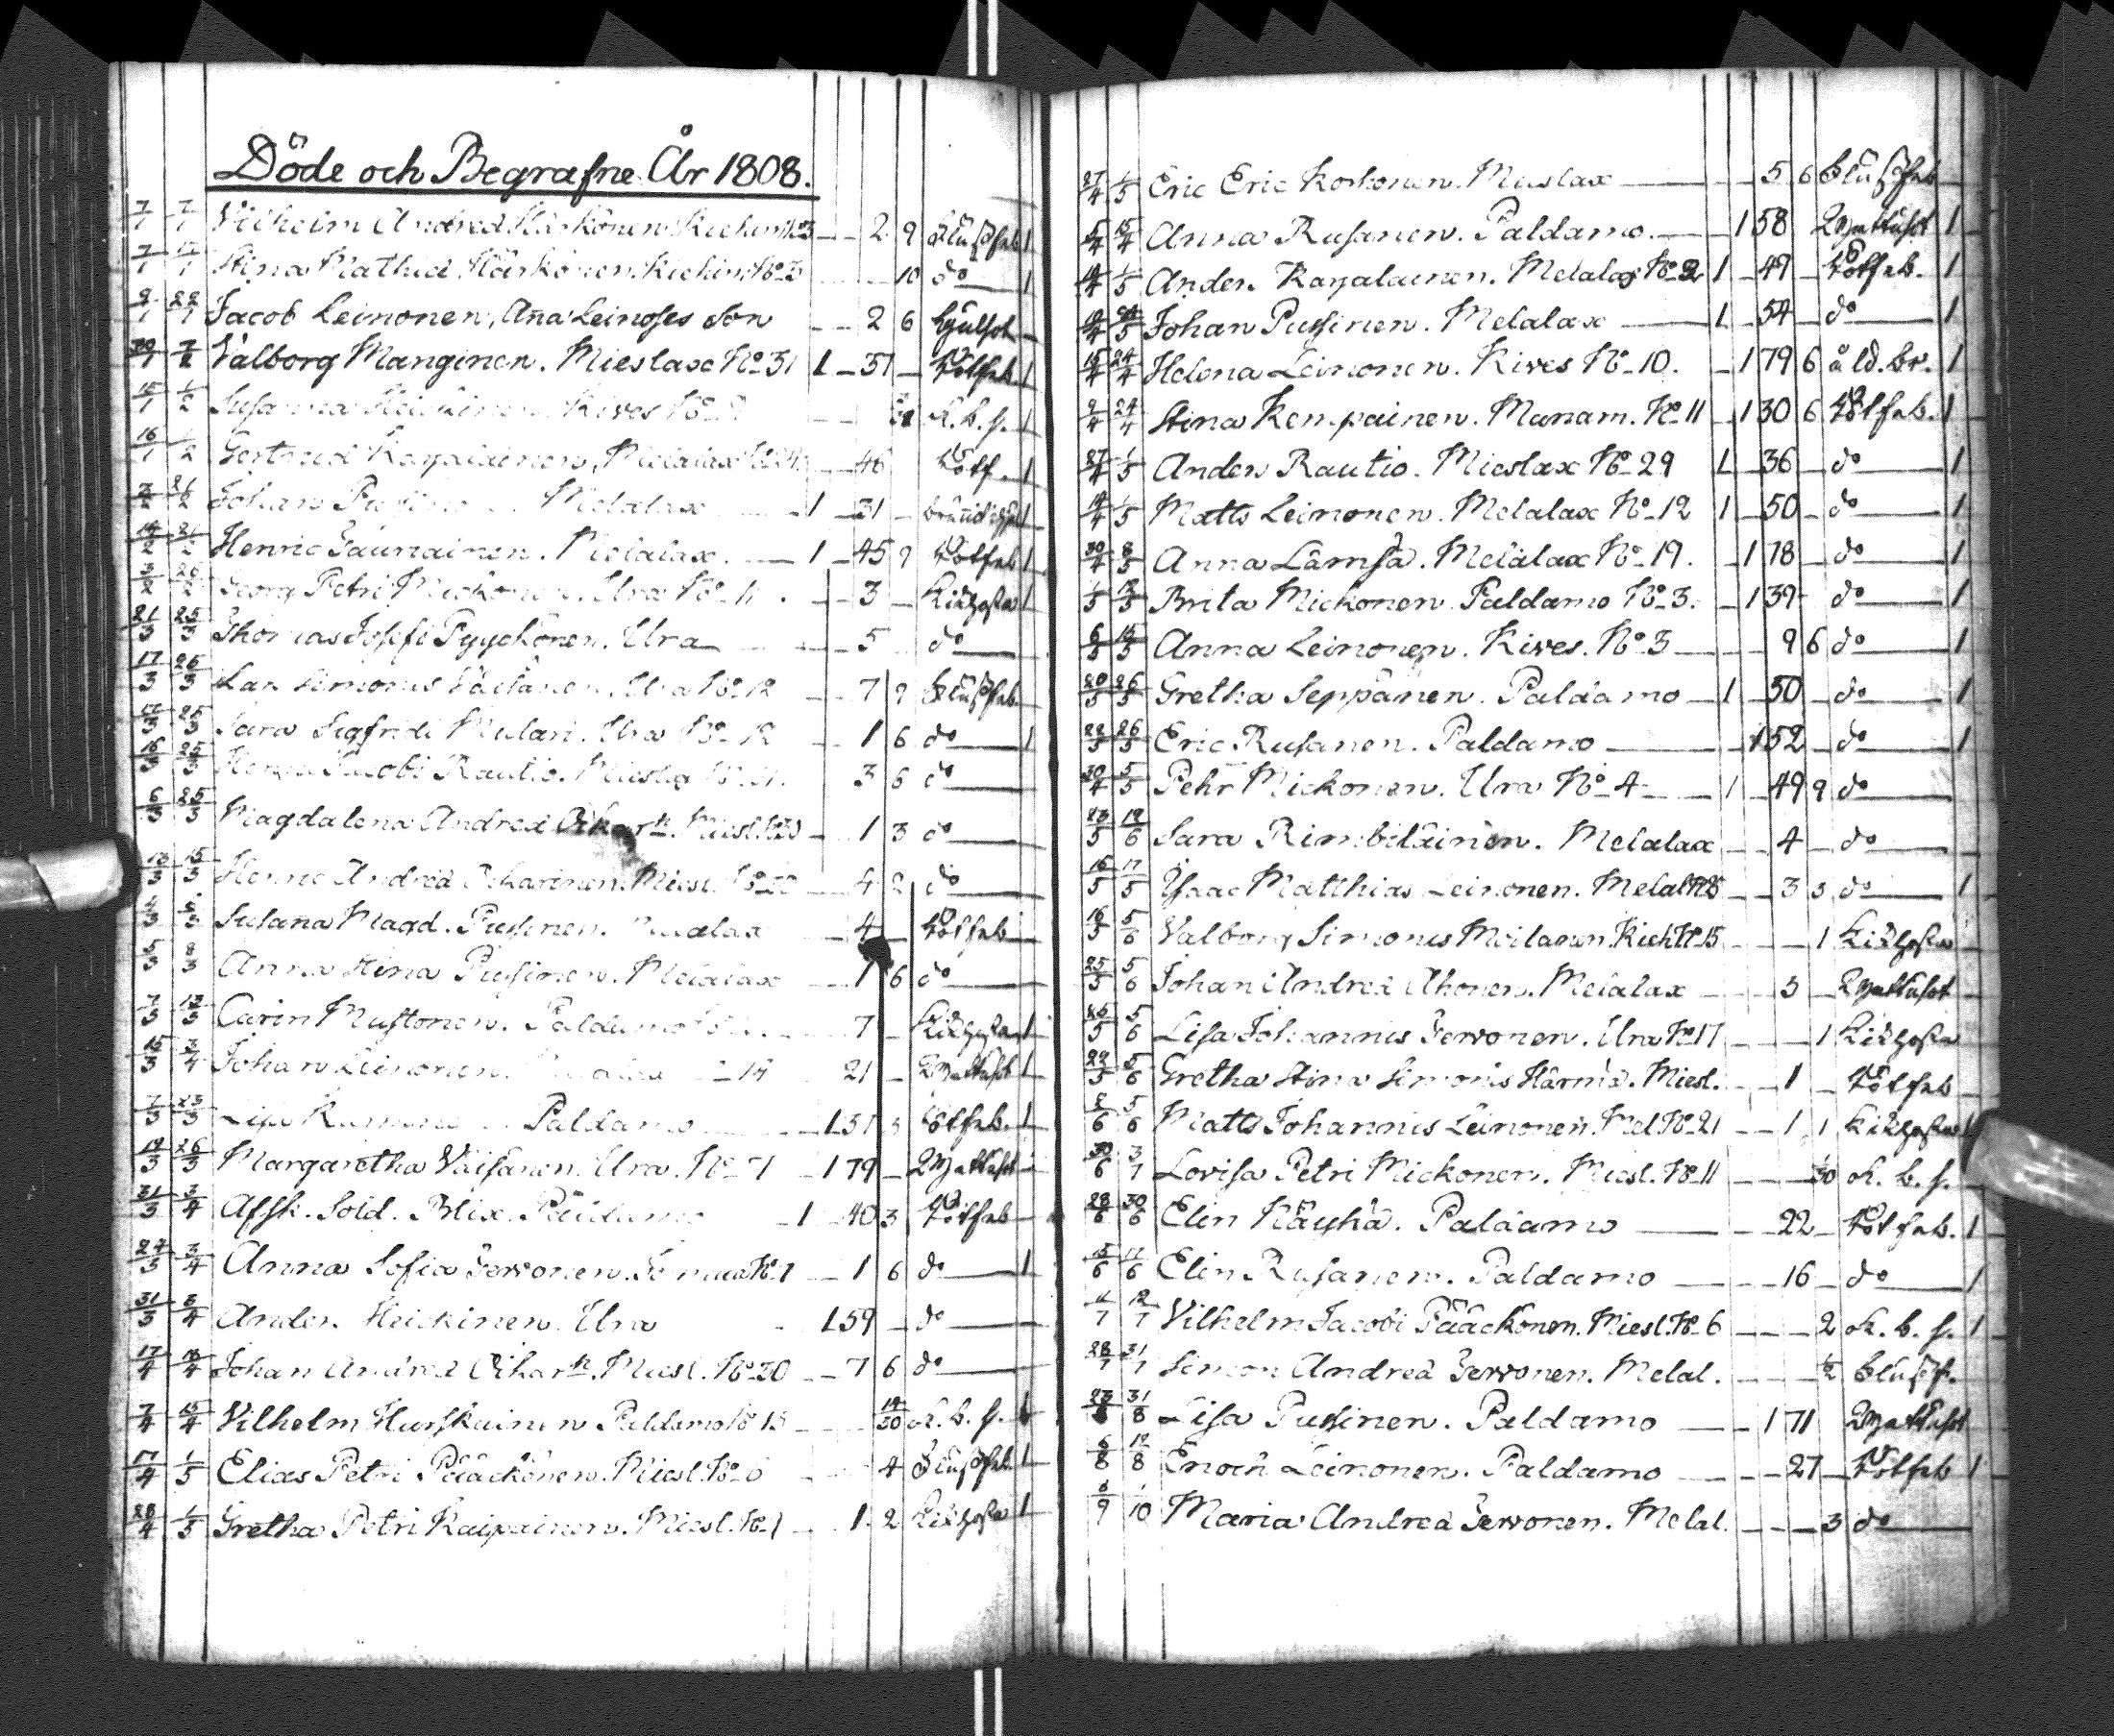 Döde och Begrafne År 1808.
7/1 7/1 Vilhelm Andreæ Härkönen Kiehim. No 3 2 9 Slußfeb 1
7/1 17/1 Stina Mathiæ Härkönen. Kiehim. No 3 10 do 1
9/1 22/1 Jacob Leinonen, Aña Leinoses Son 2 6
30/1 7/2 Valborg Manginen. Mieslax No 31 1 31 Rötfeb. 1
15/1 1/2 Susanna Heickinen. Kives No K. b. s. 1
16/1 1/2 Gertrud Karjalainen, Melalax 46 Rötf. 1
21/2 Johan Pussinen Melalax 1 31 1
14/2 21/2 Henric Jaunainen. Melalax. 1 45 9 Rötfeb 1
Georg Petri Mickonen. Ura No 11. 3 Kikhosta 1
21/3 25/3 Thomas Josefs Pyyckönen. Ura 5 do
17/3 25/3 Lars Simonis Väisänen. Ura No 12 7 9 Slußfeb.
17/3 25/3 Sara Sigfridi Mulari. Ura No 12 1 6 do 1
16/3 25/3 Jacobi Rautio. Mieslax 3 6 do
6/3 25/3 Magdalena Andreæ Oikar n. Miesl. No 30 1 3 do
13/3 15/3 Henric Andreæ Oikarinen. Miesl. No 30 4 2 do
Susaña Magd. Pussinen. Melalax 4 Rötfeb
5/3 8/3 Anna Stina Pussinen. Melalax 1 6 do
7/3 13/3 Carin Mustonen. Paldamo 7 Kikhosta 1
15/3 3/4 Johan Leinonen. 14 21 1
7/3 13/3 Lisa Paldamo 1 31 3 Rötfeb. 1
19/3 26/3 Margaretha Väisänen. Ura. No 7 1 79
31/3 3/4 Afsk. Sold. Blix. Paldamo 1 40 3 Rötfeb
27/3 3/4 Anna Sofia Jervonen. 1 6 do 1
31/3 3/4 Anders Heickinen. Ura 1 59 do
17/4 18/4 Johan Andreæ Oikar n. Miesl. No 30 7 6 do
7/4 15/4 Vilhelm Hurskainen Paldamo No 13 14/30 K. b. s. 1
17/4 1/5 Elias Petri Pääckönen. Miesl. No 6 4 Slußfeb. 1
28/4 1/5 Gretha Petri Kaipainen. Miesl. No 1 1 2 Kikhosta 1
27/4 1/5 Eric Eric Korhonen. Mieslax 5 6 Slußfeb
5/4 15/4 Anna Rusanen. Paldamo. 1 58 1
14/4 1/5 Anders Karjalainen. Melalax No 2 1 49 Rötfeb. 1
Johan Pussinen. Melalax 1 54 do 1
15/4 24/4 Helena Leinonen. Kives No 10. 1 79 6 åld. br. 1
9/4 24/4 Stina Kempainen. Manam. No 11 1 30 6 Rötfeb. 1
27/4 1/5 Anders Rautio. Mieslax No 29 1 36 do 1
14/4 1/5 Matts Leinonen. Melalax No 12 1 50 do 1
30/4 8/5 Anna Lämsä. Melalax No 19. 1 78 do 1
1/5 13/5 Brita Mickonen Paldamo No 3. 1 39 do 1
6/5 15/5 Anna Leinonen. Kives. No 3 9 6 do 1
20/5 26/5 Gretha Seppänen. Paldamo 1 50 do 1
22/5 26/5 Eric Rusanen. Paldamo 1 52 do 1
30/4 5/5 Pehr Mickonen. Ura No 4 1 49 9 do
23/5 12/6 Sara Rimbiläinen. Melalax 4 do
16/5 17/5 Ysaac Matthias Leinonen. Melal. 3 3 do 1
19/5 5/6 Valborg Simonis Moilanen. Kieh. No 15 1 Kikhosta
25/5 5/6 Johan Andreæ Ahonen. Melalax 3
26/5 5/6 Lisa Johannis Jervonen. Ura No 17 1 Kikhosta
22/5 5/6 Gretha Stina Simonis Härmä. Miesl. 1 Rötfeb
2/6 5/6 Matts Johannis Leinonen. Mel. No 21 1 1 Kikhosta 1
30/6 3/7 Lovisa Petri Mickonen. Miesl. No 11 K. b. s.
28/6 30/6 Elin Räyhä. Paldamo 22 Rötfeb. 1
15/6 17/6 Elin Rusanen. Paldamo 16 do 1
11/7 12/7 Vilhelm Jacobi Pääckönen. Miesl. No 6 2 K. b. s. 1
28/7 31/7 Simon Andreæ Jervonen. Melal. 1/2 Slußf.
31/8 Lisa Pussinen. Paldamo 1 71
6/8 12/8 Enoch Leinonen. Paldamo 27 Rötfeb 1
8/9 1/10 Maria Andreæ Jervonen. Melal. 3 do